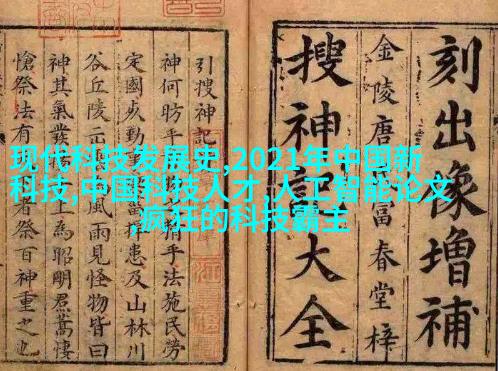 现代科技发展史,2021年中国新
科技,中国科技人才,人工智能论文
,疯狂的科技霸主
刻出像增補
金陵唐富春堂梓
搜神記大全
引搜神記
神何昉乎手法施民勞
定國捍患及山林川
谷丘陵風雨見怪物皆曰
神其氣發上為昭明焄蒿悽
愴祭法有者祭百神重之也